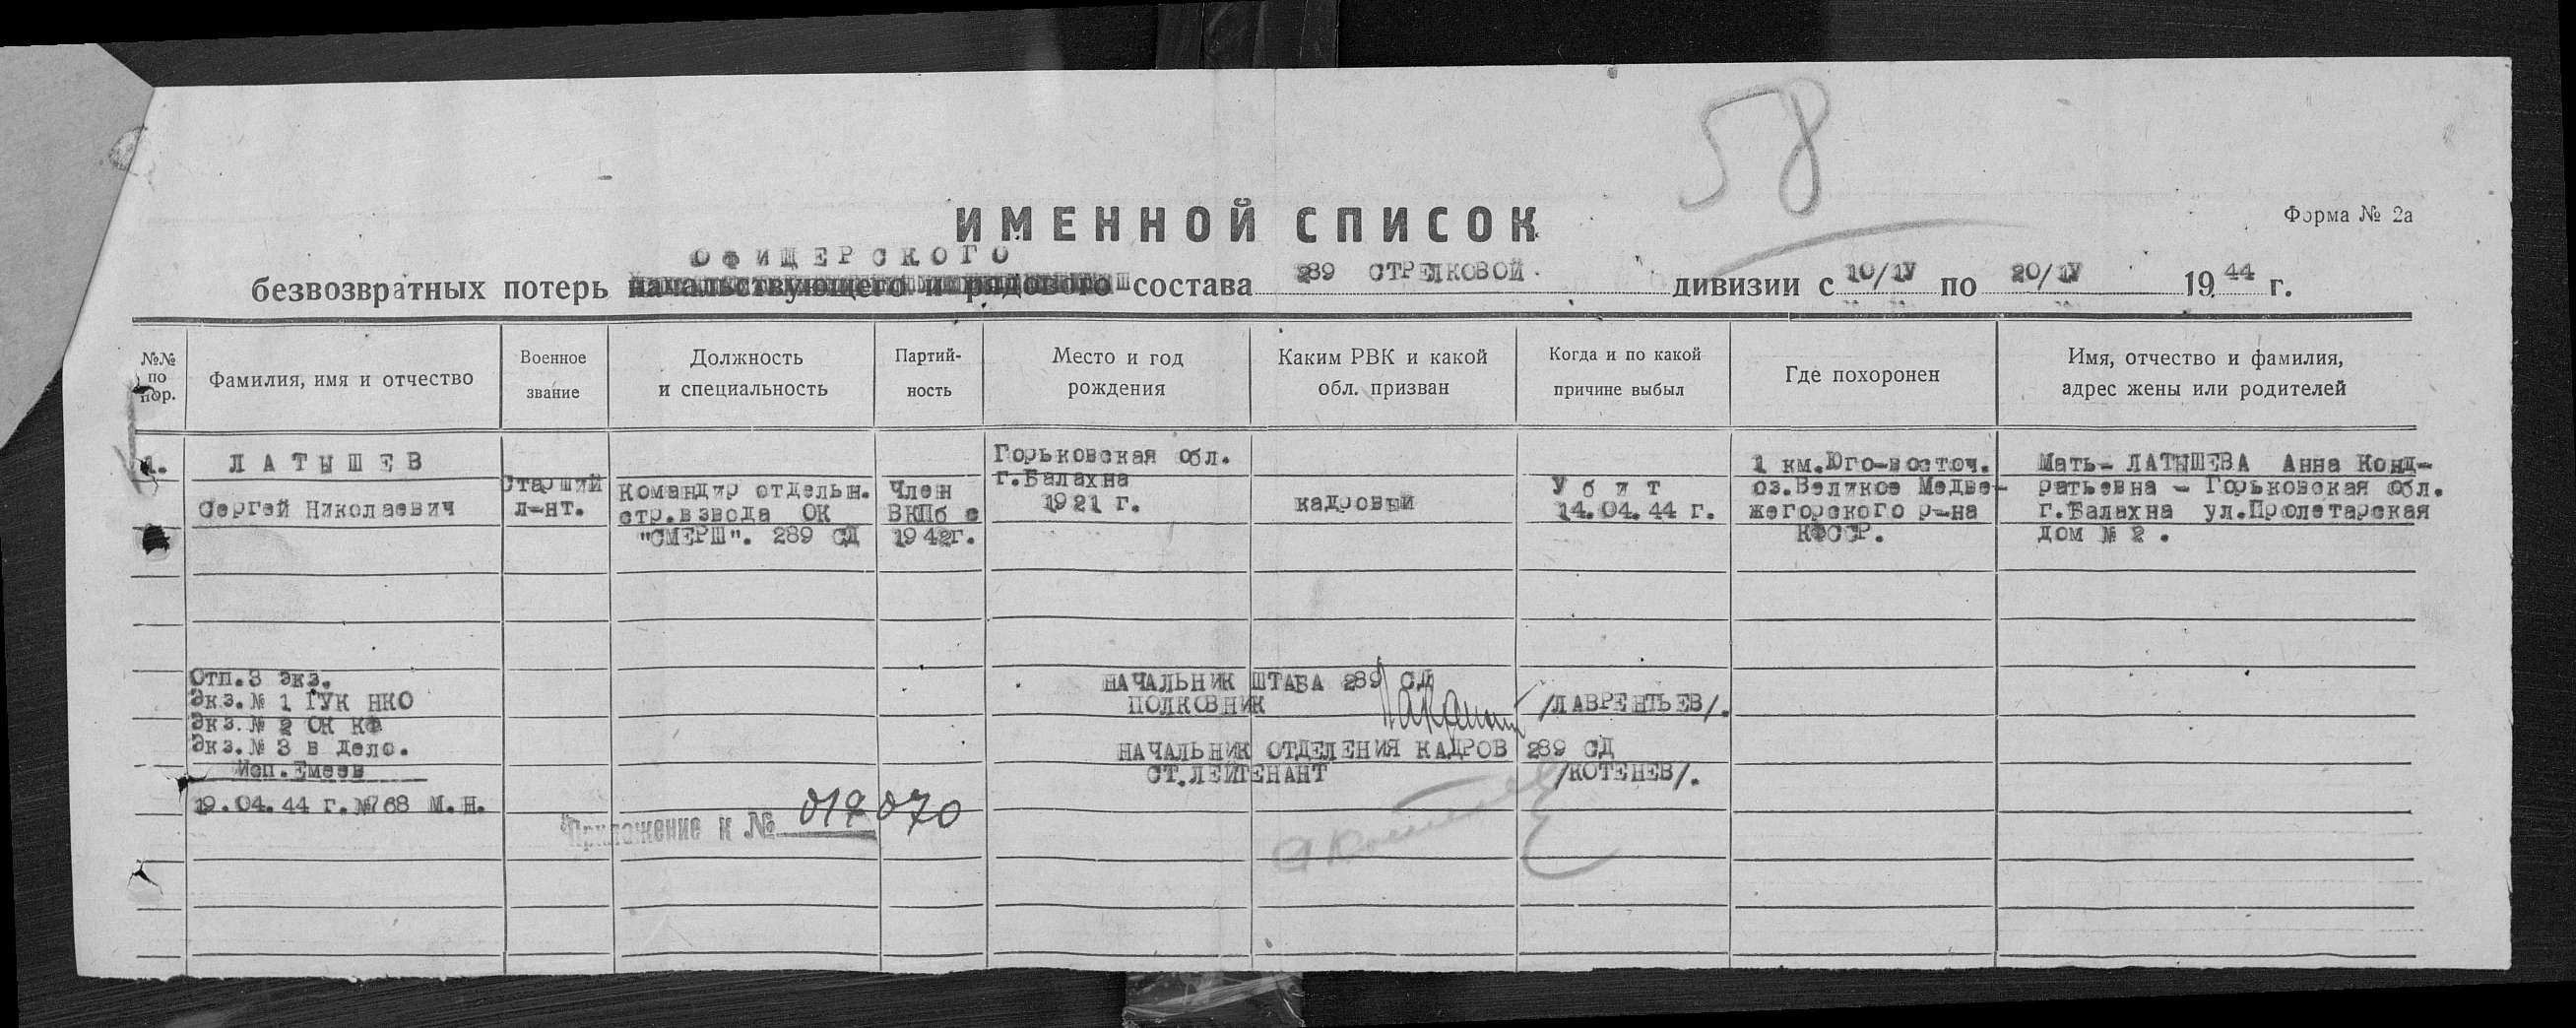 58
Форма № 2а
ИМЕННОЙ СПИСОК
ОФИЦЕРСКОГО
безвозвратных потерь начальствующего и рядового состава 289 СТРЕЛКОВОЙ дивизии с 10/IV по 20/IV 1944 г.
№№ по пор.
Фамилия, имя и отчество
Военное звание
Должность и специальность
Партий-ность
Место и год рождения
Каким РВК и какой обл. призван
Когда и по какой причине выбыл
Где похоронен
Имя, отчество и фамилия, адрес жены или родителей
1.
ЛАТЫШЕВ
Сергей Николаевич
Старший
л-нт.
Командир отдельн.
стр.взвода ОК
"СМЕРШ". 289 СД
Член
ВКПб с
1942г.
Горьковская обл.
г.Балахна
1921 г.
кадровый
Убит
14.04.44 г.
1 км.Юго-восточ.
оз.Великое Медве-
жегорского р-на
КФССР.
Мать- ЛАТЫШЕВА Анна Конд-
ратьевна - Горьковская обл.
г.Балахна ул.Пролетарская
дом № 2.
Отп.3 экз.
Экз.№ 1 ГУК НКО
Экз.№ 2 ОК КФ
Экз.№ 3 в дело.
Исп.Емеев
19.04.44 г.№768 М.Н.
НАЧАЛЬНИК ШТАБА 289 СД
ПОЛКОВНИК /ЛАВРЕНТЬЕВ/.
НАЧАЛЬНИК ОТДЕЛЕНИЯ КАДРОВ 289 СД
СТ.ЛЕЙТЕНАНТ /КОТЕНЕВ/.
Приложение к № 019070